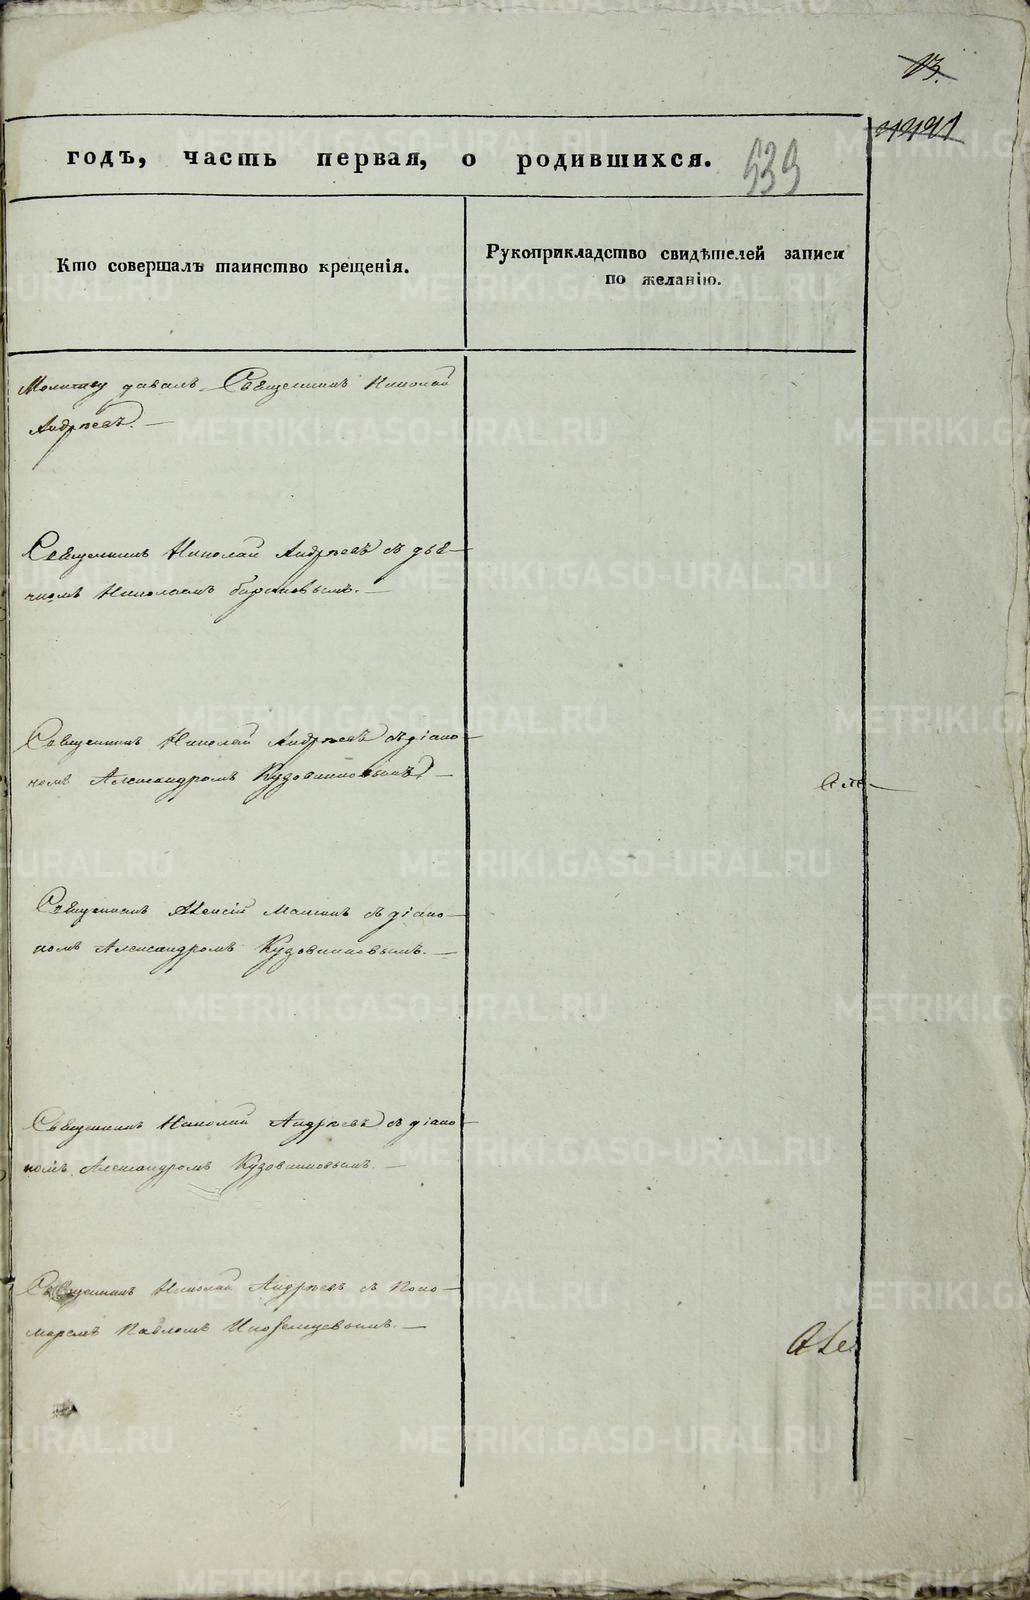 13.
годъ, часть первая, о родившихся.
539
Кто совершалъ таинство крещенія.
Рукоприкладство свидѣтелей записи
по желанію.
Молитву давалъ Священникъ Николай
Андреевъ. —
Священникъ Николай Андреевъ съ дья-
комъ Николаемъ
Священникъ Николай Андреевъ съ діако-
номъ Александромъ Кузовниковымъ —
Але-
Священникъ Алексій съ діако-
номъ Александромъ Кузовниковымъ. —
Священникъ Николай Андреевъ съ діако-
номъ Александромъ Кузовниковымъ. —
Священникъ Николай Андреевъ съ Поно-
маремъ Павломъ Иноземцевымъ. —
Але
METRIKI.GASO-URAL.RU